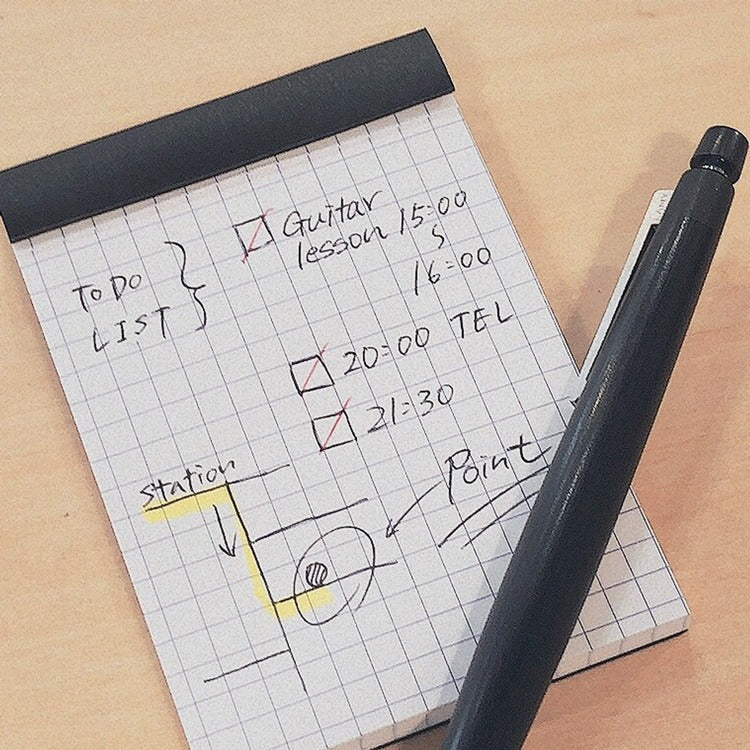 TODO
LIST
Guitar
lesson 15:00
〜
16:00
20:00 TEL
21:30
station
Point